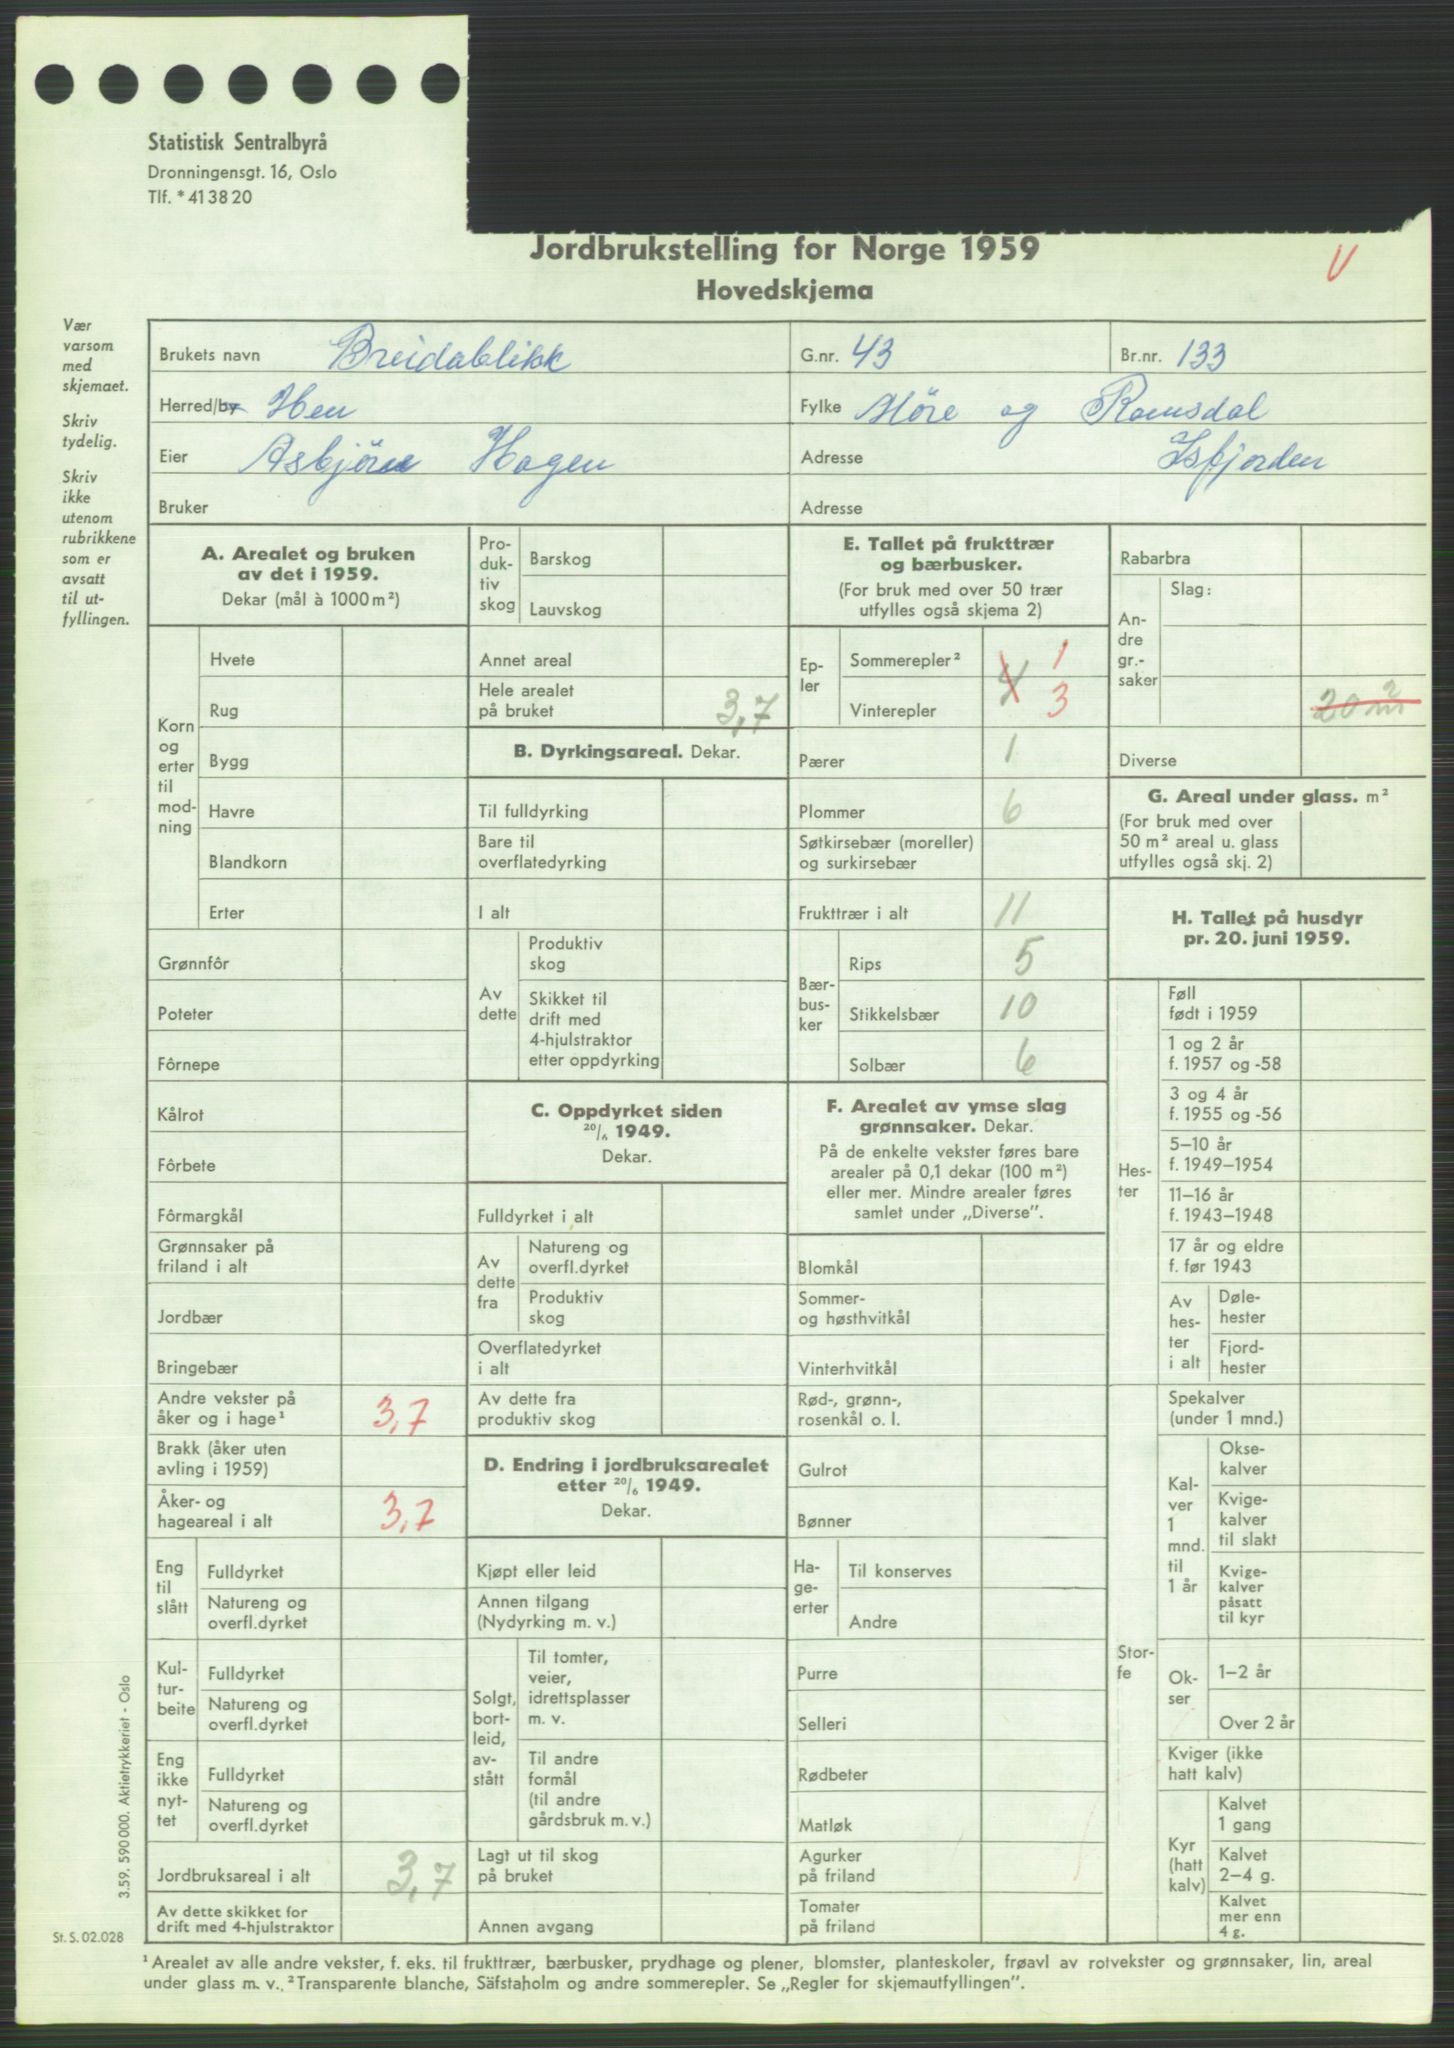 Statistisk Sentralbyrå
Dronningensgt. 16, Oslo
Tlf. * 41 38 20
Jordbrukstelling for Norge 1959
V
Hovedskjema
Vær
varsom
med
skjemaet.
Skriv
tydelig.
Skriv
ikke
utenom
rubrikkene
som er
avsatt
til ut-
fyllingen.
Brukets navn Breidablikk G.nr. 43 Br.nr. 133
Herred/by Hen Fylke Möre og Romsdal
Eier Asbjörn Hagen Adresse Isfjorden
Bruker Adresse
A. Arealet og bruken
av det i 1959.
Dekar (mål à 1000 m²)
Korn
og
erter
til
mod-
ning
Hvete
Rug
Bygg
Havre
Blandkorn
Erter
Grønnfôr
Poteter
Fôrnepe
Kålrot
Fôrbete
Fôrmargkål
Grønnsaker på
friland i alt
Jordbær
Bringebær
Andre vekster på
åker og i hage¹ 3,7
Brakk (åker uten
avling i 1959)
Åker- og
hageareal i alt 3,7
Eng
til
slått
Fulldyrket
Natureng og
overfl.dyrket
Kul-
tur-
beite
Fulldyrket
Natureng og
overfl.dyrket
Eng
ikke
nyt-
tet
Fulldyrket
Natureng og
overfl.dyrket
Jordbruksareal i alt 3,7
Av dette skikket for
drift med 4-hjulstraktor
Pro-
duk-
tiv
skog
Barskog
Lauvskog
Annet areal
Hele arealet
på bruket 3,7
B. Dyrkingsareal. Dekar.
Til fulldyrking
Bare til
overflatedyrking
I alt
Av
dette
Produktiv
skog
Skikket til
drift med
4-hjulstraktor
etter oppdyrking
C. Oppdyrket siden
20/6 1949.
Dekar.
Fulldyrket i alt
Av
dette
fra
Natureng og
overfl.dyrket
Produktiv
skog
Overflatedyrket
i alt
Av dette fra
produktiv skog
D. Endring i jordbruksarealet
etter 20/6 1949.
Dekar.
Kjøpt eller leid
Annen tilgang
(Nydyrking m. v.)
Solgt,
bort-
leid,
av-
stått
Til tomter,
veier,
idrettsplasser
m. v.
Til andre
formål
(til andre
gårdsbruk m. v.)
Lagt ut til skog
på bruket
Annen avgang
E. Tallet på frukttrær
og bærbusker.
(For bruk med over 50 trær
utfylles også skjema 2)
Ep-
ler
Sommerepler² 1
4
Vinterepler 3
Pærer 1
Plommer 6
Søtkirsebær (moreller)
og surkirsebær
Frukttrær i alt 11
Bær-
bus-
ker
Rips 5
Stikkelsbær 10
Solbær 6
F. Arealet av ymse slag
grønnsaker. Dekar.
På de enkelte vekster føres bare
arealer på 0,1 dekar (100 m²)
eller mer. Mindre arealer føres
samlet under „Diverse”.
Blomkål
Sommer-
og høsthvitkål
Vinterhvitkål
Rød-, grønn-,
rosenkål o. l.
Gulrot
Bønner
Ha-
ge-
erter
Til konserves
Andre
Purre
Selleri
Rødbeter
Matløk
Agurker
på friland
Tomater
på friland
Rabarbra
An-
dre
gr.-
saker
Slag:
20 m²
Diverse
G. Areal under glass. m²
(For bruk med over
50 m² areal u. glass
utfylles også skj. 2)
H. Tallet på husdyr
pr. 20. juni 1959.
Hes-
ter
Føll
født i 1959
1 og 2 år
f. 1957 og -58
3 og 4 år
f. 1955 og -56
5–10 år
f. 1949–1954
11–16 år
f. 1943–1948
17 år og eldre
f. før 1943
Av
hes-
ter
i alt
Døle-
hester
Fjord-
hester
Stor-
fe
Spekalver
(under 1 mnd.)
Kal-
ver
1
mnd.
til
1 år
Okse-
kalver
Kvige-
kalver
til slakt
Kvige-
kalver
påsatt
til kyr
Ok-
ser
1–2 år
Over 2 år
Kviger (ikke
hatt kalv)
Kyr
(hatt
kalv)
Kalvet
1 gang
Kalvet
2–4 g.
Kalvet
mer enn
4 g.
3.59. 590 000. Aktietrykkeriet - Oslo
St. S. 02.028
¹ Arealet av alle andre vekster, f. eks. til frukttrær, bærbusker, prydhage og plener, blomster, planteskoler, frøavl av rotvekster og grønnsaker, lin, areal
under glass m. v., ² Transparente blanche, Säfstaholm og andre sommerepler. Se „Regler for skjemautfyllingen”.